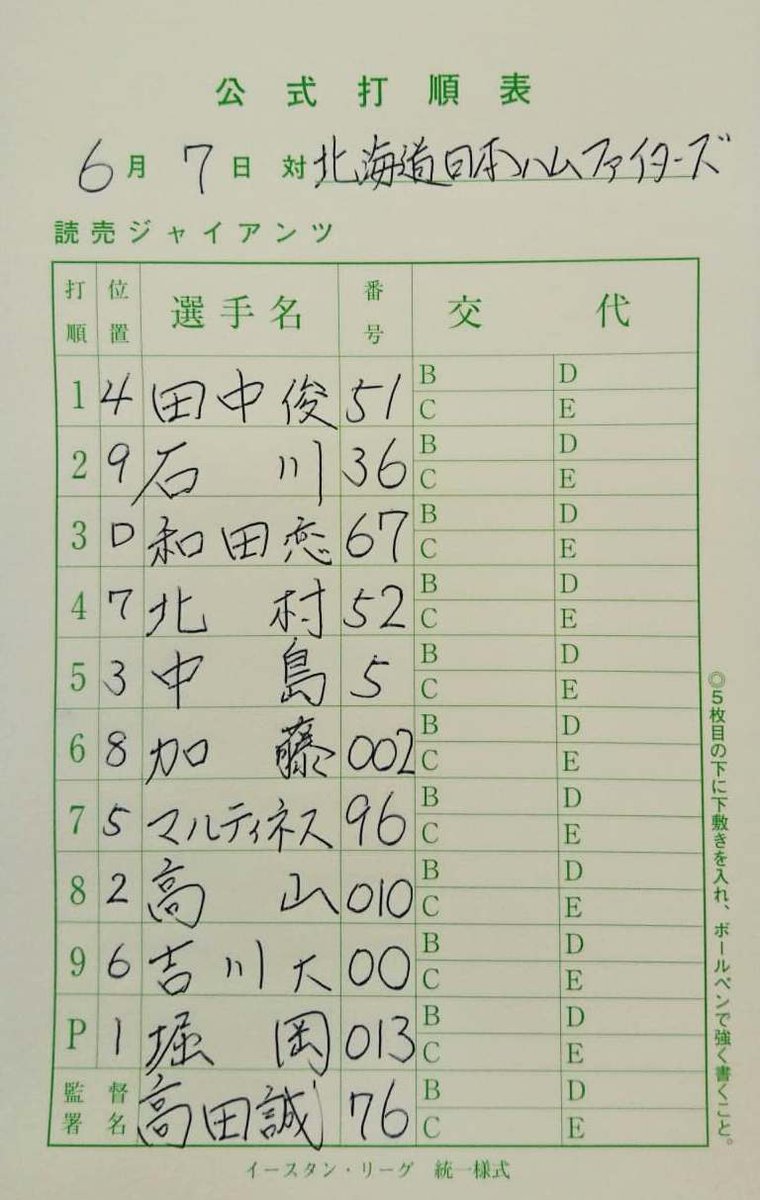 公式打順表
6月7日 対 北海道日本ハムファイターズ
読売ジャイアンツ
打順 位置 選手名 番号 交代
1 4 田中俊 51 B D C E
2 9 石川 36 B D C E
3 D 和田恋 67 B D C E
4 7 北村 52 B D C E
5 3 中島 5 B D C E
6 8 加藤 002 B D C E
7 5 マルティネス 96 B D C E
8 2 高山 010 B D C E
9 6 吉川大 00 B D C E
P 1 堀岡 013 B D C E
監督署名 高田誠 76 B D C E
イースタン・リーグ 統一様式
◎5枚目の下に下敷きを入れ、ボールペンで強く書くこと。